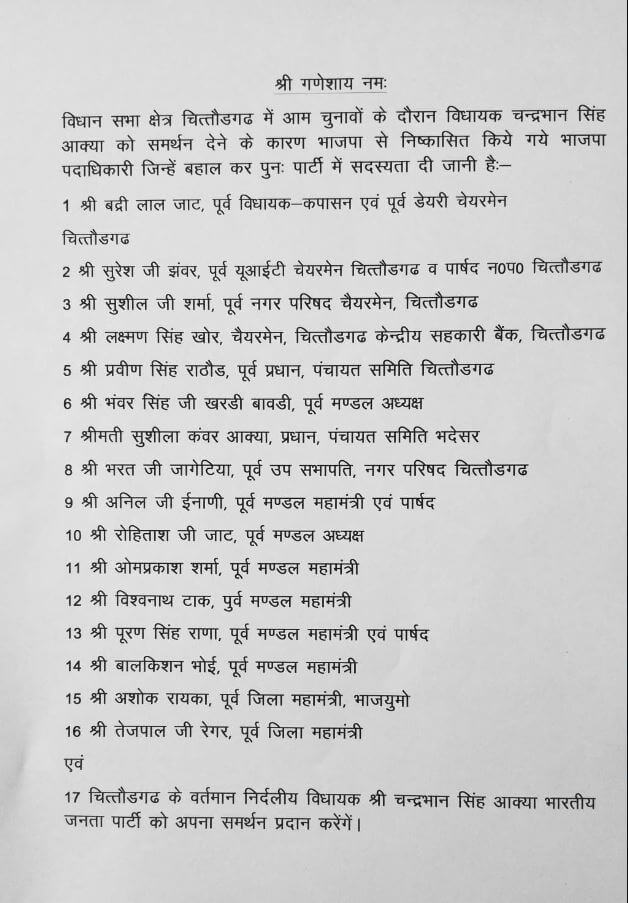 श्री गणेशाय नमः
विधान सभा क्षेत्र चित्तौडगढ में आम चुनावों के दौरान विधायक चन्द्रभान सिंह
आक्या को समर्थन देने के कारण भाजपा से निष्कासित किये गये भाजपा
पदाधिकारी जिन्हें बहाल कर पुनः पार्टी में सदस्यता दी जानी हैः–
1 श्री बद्री लाल जाट, पूर्व विधायक–कपासन एवं पूर्व डेयरी चेयरमेन
चित्तौडगढ
2 श्री सुरेश जी झंवर, पूर्व यूआईटी चेयरमेन चित्तौडगढ व पार्षद न0प0 चित्तौडगढ
3 श्री सुशील जी शर्मा, पूर्व नगर परिषद चैयरमेन, चित्तौडगढ
4 श्री लक्ष्मण सिंह खोर, चैयरमेन, चित्तौडगढ केन्द्रीय सहकारी बैंक, चित्तौडगढ
5 श्री प्रवीण सिंह राठौड, पूर्व प्रधान, पंचायत समिति चित्तौडगढ
6 श्री भंवर सिंह जी खरडी बावडी, पूर्व मण्डल अध्यक्ष
7 श्रीमती सुशीला कंवर आक्या, प्रधान, पंचायत समिति भदेसर
8 श्री भरत जी जागेटिया, पूर्व उप सभापति, नगर परिषद चित्तौडगढ
9 श्री अनिल जी ईनाणी, पूर्व मण्डल महामंत्री एवं पार्षद
10 श्री रोहिताश जी जाट, पूर्व मण्डल अध्यक्ष
11 श्री ओमप्रकाश शर्मा, पूर्व मण्डल महामंत्री
12 श्री विश्वनाथ टाक, पुर्व मण्डल महामंत्री
13 श्री पूरण सिंह राणा, पूर्व मण्डल महामंत्री एवं पार्षद
14 श्री बालकिशन भोई, पूर्व मण्डल महामंत्री
15 श्री अशोक रायका, पूर्व जिला महामंत्री, भाजयुमो
16 श्री तेजपाल जी रेगर, पूर्व जिला महामंत्री
एवं
17 चित्तौडगढ के वर्तमान निर्दलीय विधायक श्री चन्द्रभान सिंह आक्या भारतीय
जनता पार्टी को अपना समर्थन प्रदान करेंगें।